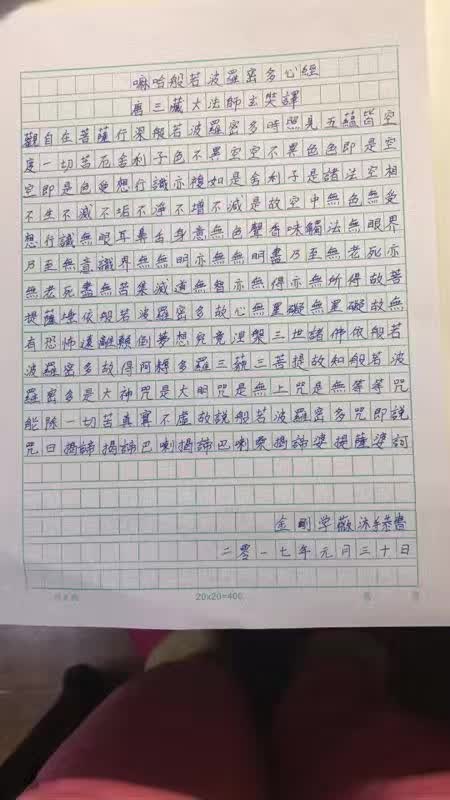 嘛哈般若波羅密多心經
唐三藏大法師玄奘譯
觀自在菩薩行深般若波羅密多時照見五蘊皆空
度一切苦厄舍利子色不異空空不異色色即是空
空即是色受想行識亦複如是舍利子是諸法空相
不生不滅不垢不淨不增不減是故空中無色無受
想行識無眼耳鼻舌身意無色聲香味觸法無眼界
乃至無意識界無無明亦無無明盡乃至無老死亦
無老死盡無苦集滅道無智亦無得亦無所得故菩
提薩埵依般若波羅密多故心無罣礙無罣礙故無
有恐怖遠離顛倒夢想究竟涅槃三世諸佛依般若
波羅密多故得阿耨多羅三藐三菩提故知般若波
羅密多是大神咒是大明咒是無上咒是無等等咒
能除一切苦真實不虛故説般若波羅密多咒即説
咒曰揭諦揭諦巴喇揭諦巴喇桑揭諦婆提薩婆訶
金剛学徽沐手恭書
二零一七年元月三十日
20x20=400